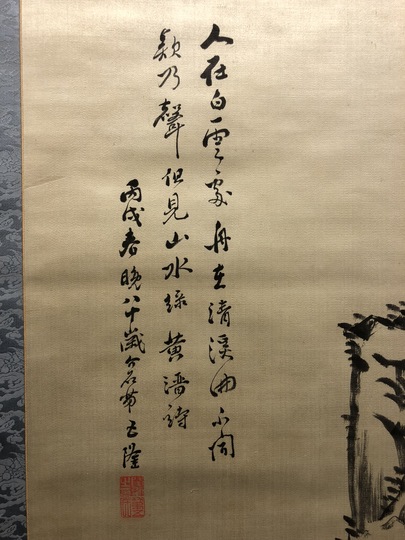 人在白雲處舟在清溪曲不聞
欸乃聲但見山水綠黄溍詩
丙戌春晚八十歲